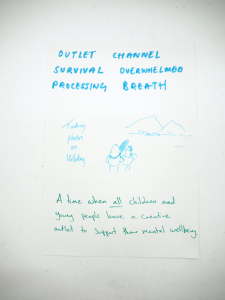 OUTLET CHANNEL
SURVIVAL OVERWHELMED
PROCESSING BREATH
Taking
photos
on
holiday
A time when all children and
young people have a creative
outlet to support their mental wellbeing